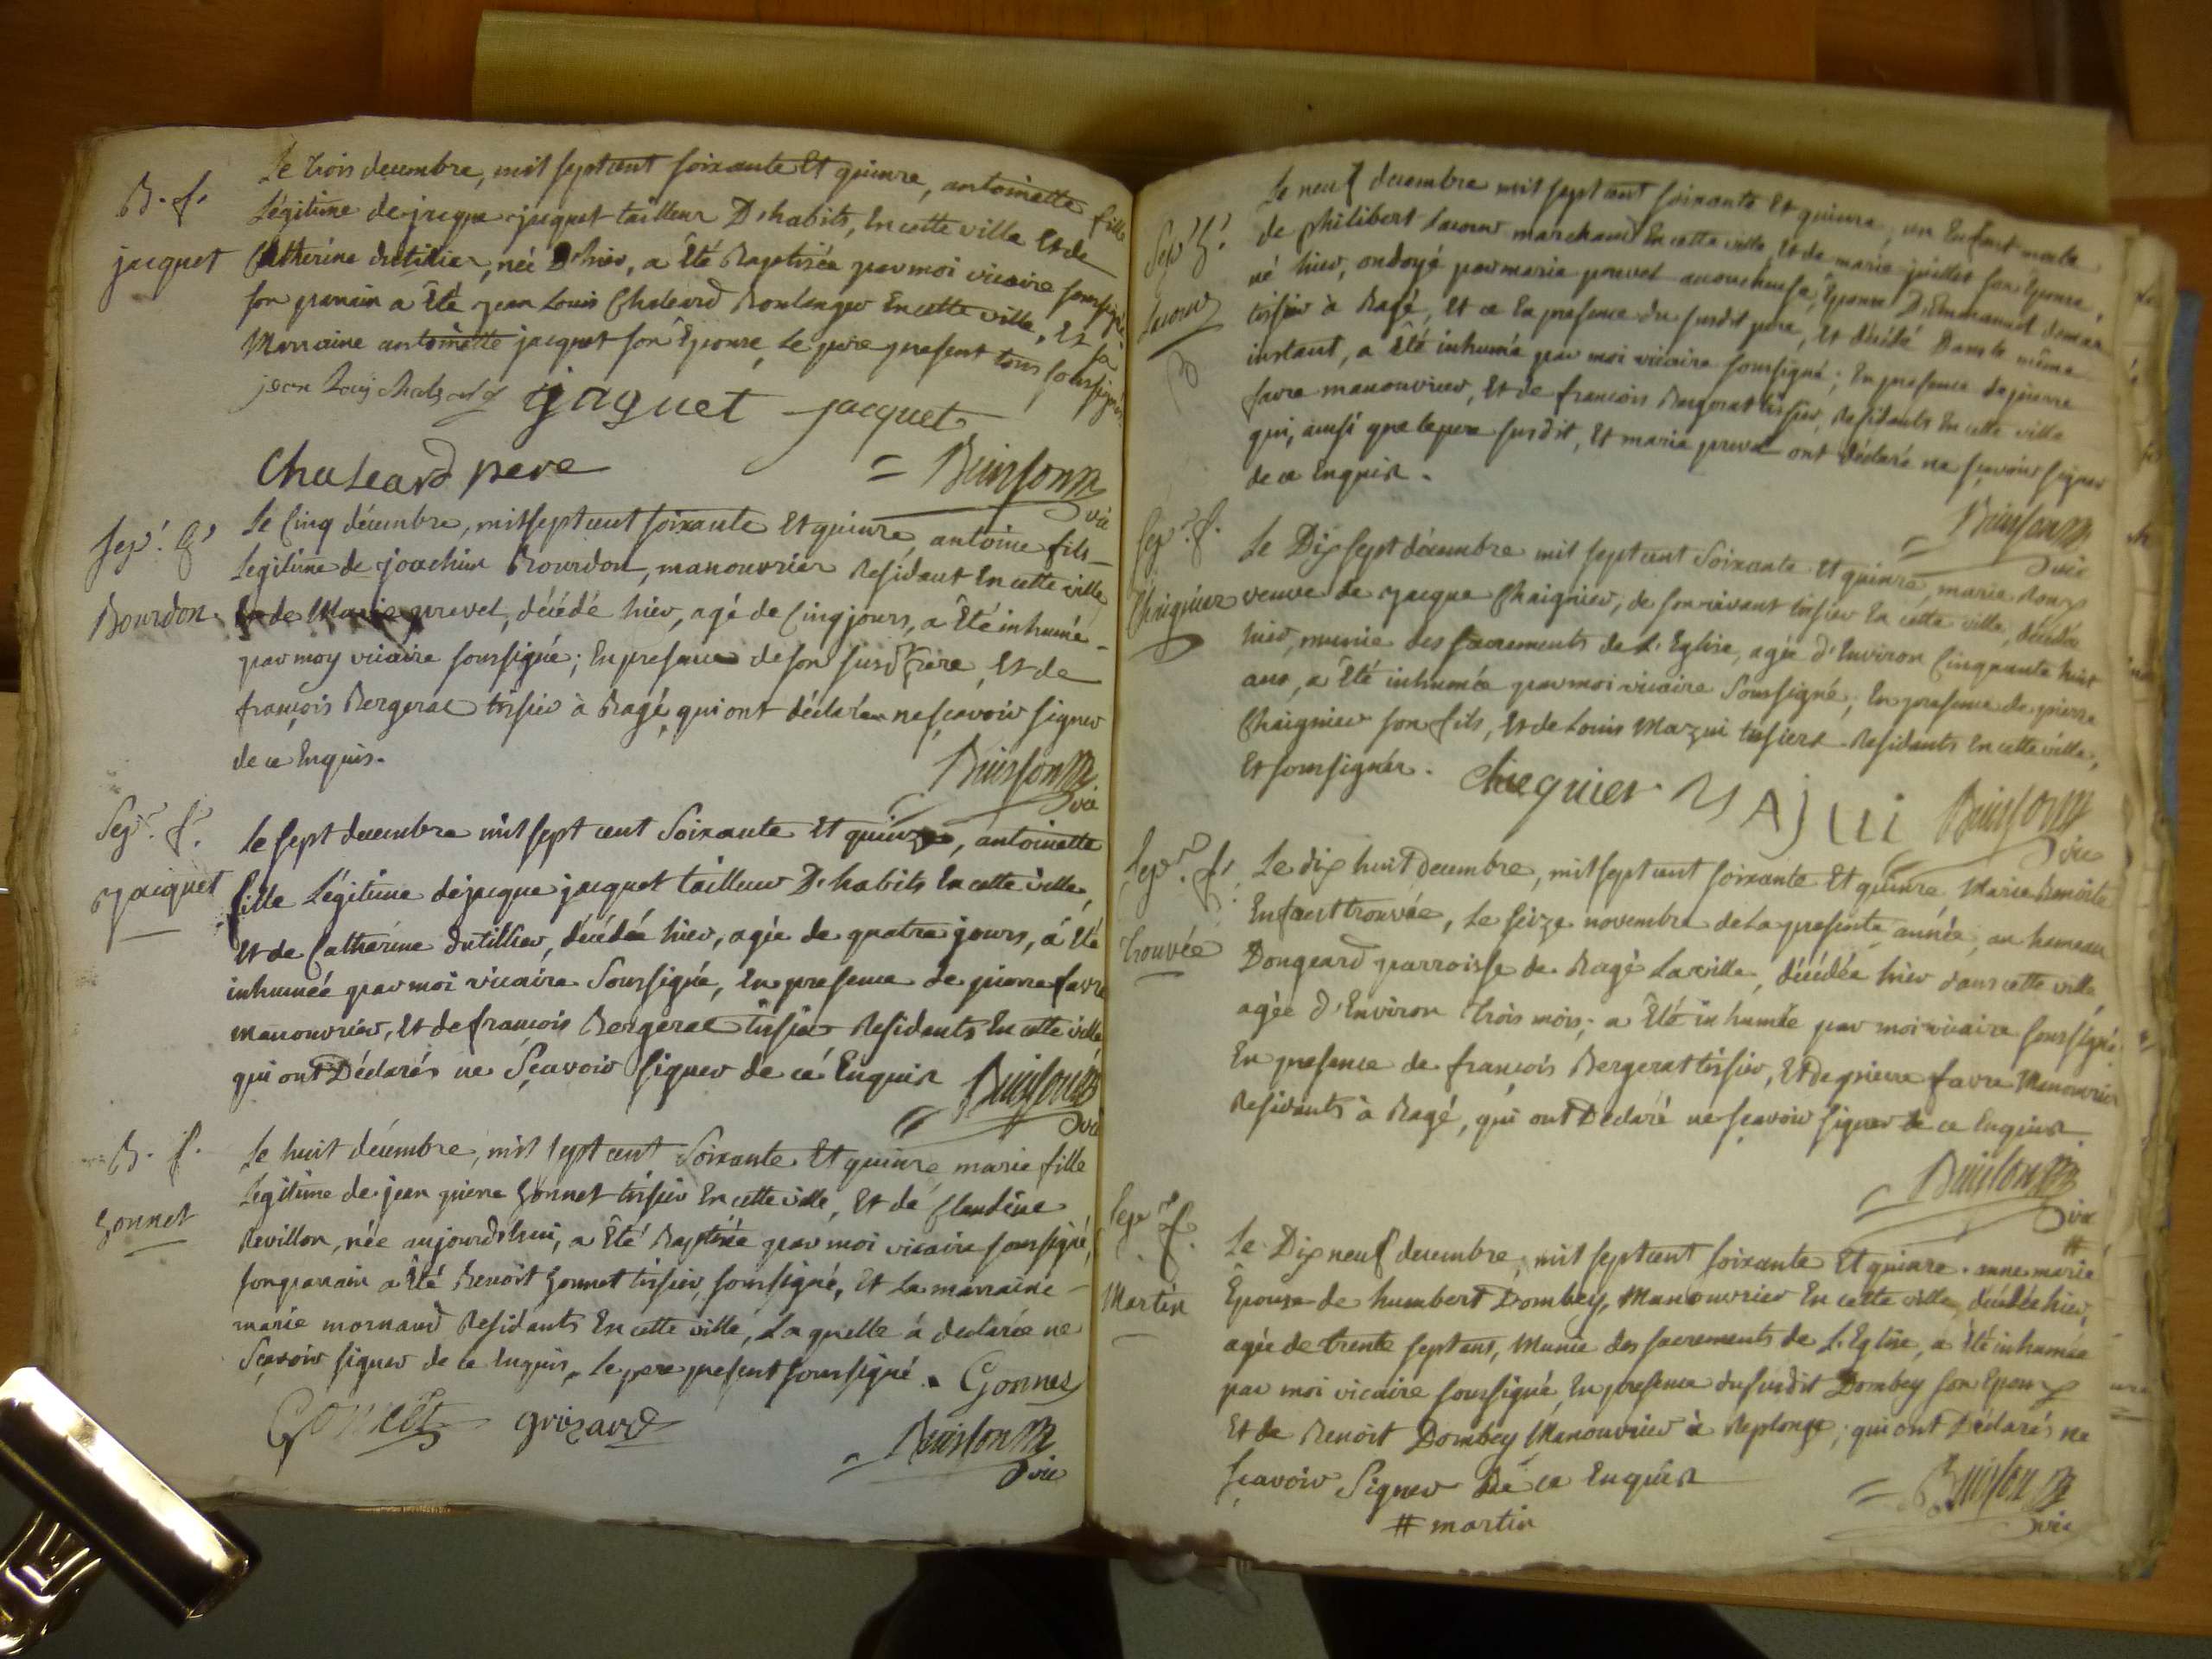 B. f.
jacquet
Le trois decembre, mil septcent soixante Et quinze, antoinette fille
Légitime de jacque jacquet tailleur D'habits, En cette ville Et de
Catherine dutillier, née D'hier, a Été Baptisée par moi vicaire soussigné
son parrain a Été jean Louis Chaleard Boulanger En cette ville, Et sa
Marraine antoinette jacquet son Épouse, Le père present tous soussignés
jean Louis Chaleard jaquet jacquet
Chaleard pere = Buisson
vic
Sep. g.
Bourdon.
Le Cinq décembre, mil septcent soixante Et quinze, antoine fils
Legitime de joachim Bourdon, manouvrier Residant En cette ville
Et de Marie prevel, décédé hier, agé de Cinq jours, a Été inhumé
par moy vicaire soussigné; En presence de son susd. Père, Et de
françois Bergerat tissier à Bagé, qui ont déclaré ne sçavoir signer
de ce Enquis.
Buisson
vic
Sep. f.
jacquet
Le sept decembre mil sept cent Soixante Et quinze, antoinette
fille Légitime de jacque jacquet tailleur D'habits En cette ville,
Et de Catherine dutillier, décédée hier, agée de quatre jours, a Été
inhumée par moi vicaire Soussigné, En presence de pierre favre
manouvrier, Et de françois Bergerat tissier Residants En cette ville
qui ont Déclarés ne Sçavoir signer de cé Enquis Buisson
vic
B. f.
Gonnet
Le huit décembre, mil sept cent Soixante Et quinze, marie fille
Légitime de jean pierre Gonnet tissier En cette ville, Et de Claudine
Revillon, née aujourd'hui, a Été Baptisée par moi vicaire soussigné,
son parrain a Été Benoit Gonnet tissier, soussigné, Et La marraine
marie mornand Residants En cette ville, Laquelle à declarée ne
Sçavoir signer de ce Enquis, Le pere present soussigné. Gonnet
Gonnet grizard
Buisson
vic
Sep. g.
Lacour
Le neuf decembre mil sept cent soixante Et quinze, un Enfant male
de philibert Lacour marchand En cette ville, Et de marie juillet son Épouse,
né hier, ondoyé par marie prevel accoucheuse, Épouse D'Emmanuel
tissier à Bagé, Et ce En presence du susdit pere, Et décédé Dans le même
instant, a Été inhumé par moi vicaire soussigné; En presence de pierre
favre manouvrier, Et de francois Bergerat tissier, Residants En cette ville
qui, ainsi que le pere susdit, Et marie prevel ont déclaré ne sçavoir signer
de ce Enquis.
Buisson
vic
Sep. f.
Chaignier
Le Dix sept décembre mil sept cent Soixante Et quinze, marie Roux
veuve de jacque Chaignier, de son vivant tissier En cette ville, décédée
hier, munie des sacrements de L'Eglise, agée d'Environ Cinquante huit
ans, a Été inhumée par moi vicaire Soussigné; En presence de pierre
Chaignier son fils, Et de Louis Mazui tissiers Residants En cette ville,
Et soussignés. Cheignier MAJUI Buisson
vic
Sep. f.
trouvée
Le dix huit Decembre, mil sept cent soixante Et quinze, Marie Benoite
Enfant trouvée, Le seize novembre de La presente année, au hameau
Dongeard parroisse de Bagé La ville, décédée hier dans cette ville
agée d'Environ trois mois; a Été inhumée par moi vicaire soussigné
En presence de françois Bergerat tissier, Et de pierre favre Manouvrier
Residants à Bagé, qui ont Déclaré ne sçavoir signer de ce Enquis.
Buisson
vic
Sep. f.
Martin
Le Dix neuf decembre, mil sept cent soixante Et quinze. anne marie #
Épouse de humbert Dombey, Manouvrier En cette ville, décédée hier,
agée de trente sept ans, Munie des sacrements de L'Eglise, a Été inhumée
par moi vicaire soussigné, En presence du susdit Dombey son Epoux
Et de Benoit Dombey Manouvrier à Replonge, qui ont Déclarés ne
sçavoir Signer De ce Enquis
# martin
= Buisson
vic